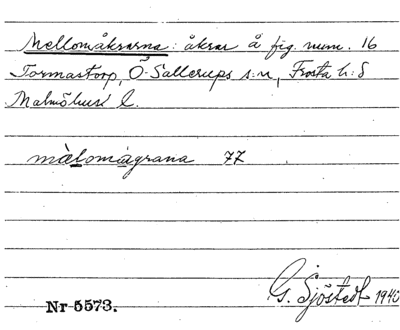 Mellomåkrarna: åkrar å fig. num. 16
Tormastorp, Ö. Sallerups s:n, Frosta h:d
Malmöhus l.
mälomågrana 77
G. Sjöstedt 1940
Nr 5573.